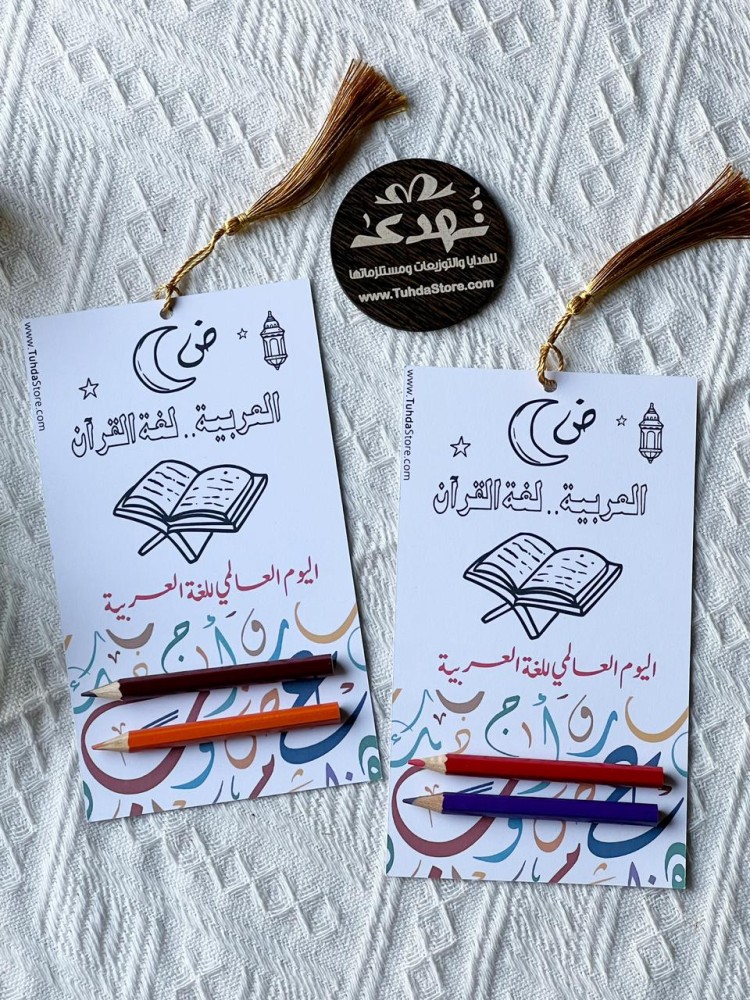 تُهدى
للهدايا والتوزيعات ومستلزماتها
www.TuhdaStore.com
www.TuhdaStore.com
ض
العربية.. لغة القرآن
اليوم العالمي للغة العربية
www.TuhdaStore.com
ض
العربية.. لغة القرآن
اليوم العالمي للغة العربية